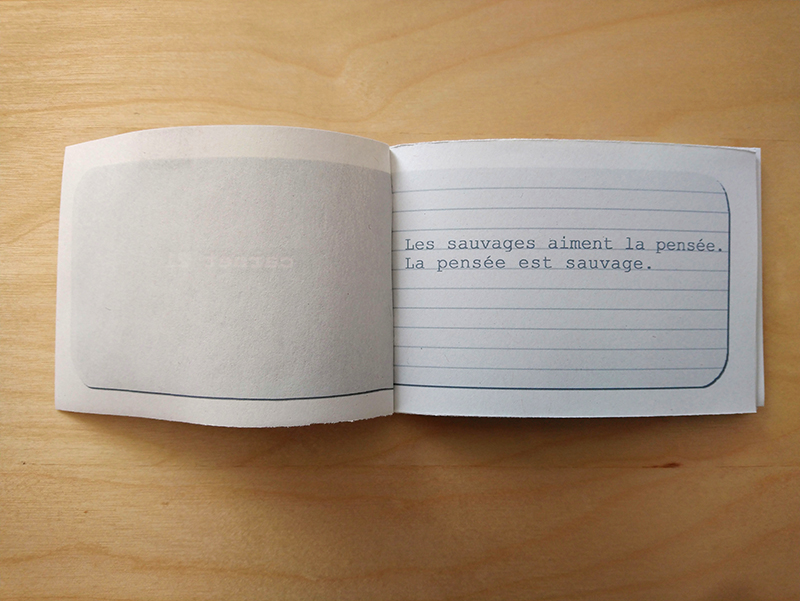 Les sauvages aiment la pensée.
La pensée est sauvage.